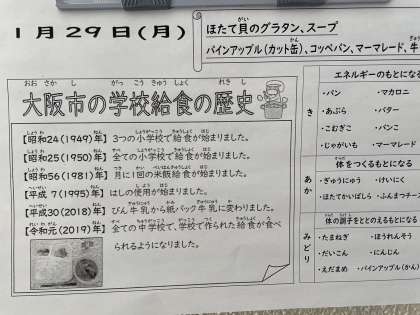 1月29日(月)
ほたて貝のグラタン、スープ
パインアップル(カット缶)、コッペパン、マーマレード、牛
大阪市の学校給食の歴史
【昭和24(1949)年】 3つの小学校で給食が始まりました。
【昭和25(1950)年】 全ての小学校で給食が始まりました。
【昭和56(1981)年】 月に1回の米飯給食が始まりました。
【平成 7(1995)年】 はしの使用が始まりました。
【平成30(2018)年】 びん牛乳から紙パック牛乳に変わりました。
【令和元(2019)年】 全ての中学校で、学校で作られた給食が食べ
られるようになりました。
エネルギーのもとになる
き
・パン ・マカロニ
・あぶら ・バター
・こむぎこ ・パンこ
・じゃがいも ・マーマレード
体をつくるもとになる
あか
・ぎゅうにゅう ・けいにく
・ほたてかいばしら ・ふんまつチーズ
体の調子をととのえるもとになる
みどり
・たまねぎ ・ほうれんそう
・だいこん ・にんじん
・えだまめ ・パインアップル(かん)